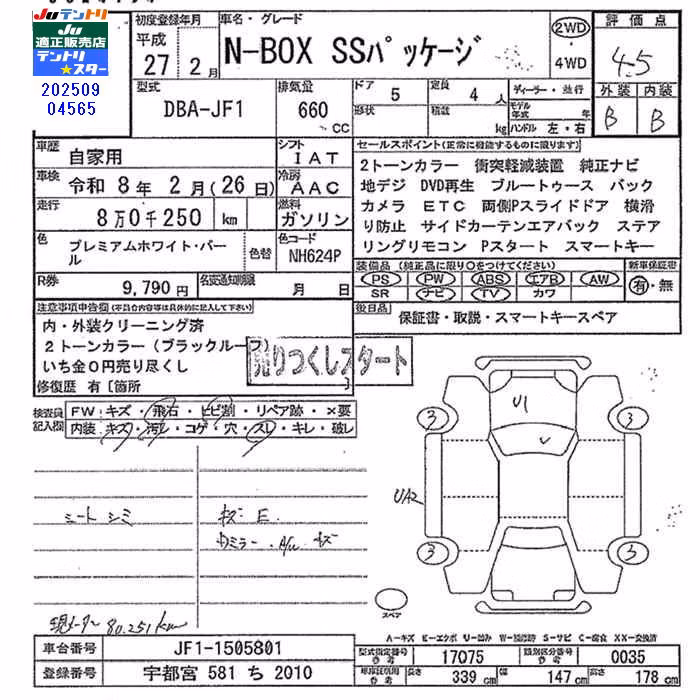 JUテントリ
JU
適正販売店
テントリ
★スター
202509
04565
初度登録年月
平成
27 2月
車名・グレード
N-BOX SSパッケージ
2WD
・
4WD
評価点
4.5
外装 内装
B B
型式
DBA-JF1
排気量
660 CC
ドア 5
形状
定員 4人
積載 kg
ディーラー・並行
モデル年式 年
ハンドル 左・右
車歴 自家用
シフト IAT
車検 令和 8年 2月(26日)
冷房 AAC
走行 8万0千250 km
燃料 ガソリン
色 プレミアムホワイト・パール
色替
色コード NH624P
R券 9,790円
名変通知期限 月 日
セールスポイント(正常に機能するものに限ります)
2トーンカラー 衝突軽減装置 純正ナビ
地デジ DVD再生 ブルートゥース バック
カメラ ETC 両側Pスライドドア 横滑
り防止 サイドカーテンエアバック ステア
リングリモコン Pスタート スマートキー
装備品(純正品に限り○をつけてください)
新車保証書
PS PW ABS エアB AW
SR ナビ TV カワ
有・無
後日品
保証書・取説・スマートキースペア
注意事項申告欄(不具合内容等は具体的に記入して下さい)
内・外装クリーニング済
2トーンカラー(ブラックルーフ)
いち金0円売り尽くし
修復歴 有[箇所
売りつくしスタート
検査員記入欄
FW: キズ・飛石・ヒビ割・リペア跡・×要
内装: キズ・汚レ・コゲ・穴・スレ・キレ・破レ
シート シミ
キズ E
カミラー・A/W キズ
現メーター 80.251km
U1
3 3
UA2
3 3
スペア
A-キズ E-エクボ U-凹み W-補修跡 S-サビ C-腐食 XX-交換済
車台番号 JF1-1505801
登録番号 宇都宮 581 ち 2010
型式指定番号 参考 17075
類別区分番号 参考 0035
車庫証明用 参考
長さ 339 cm
幅 147 cm
高さ 178 cm